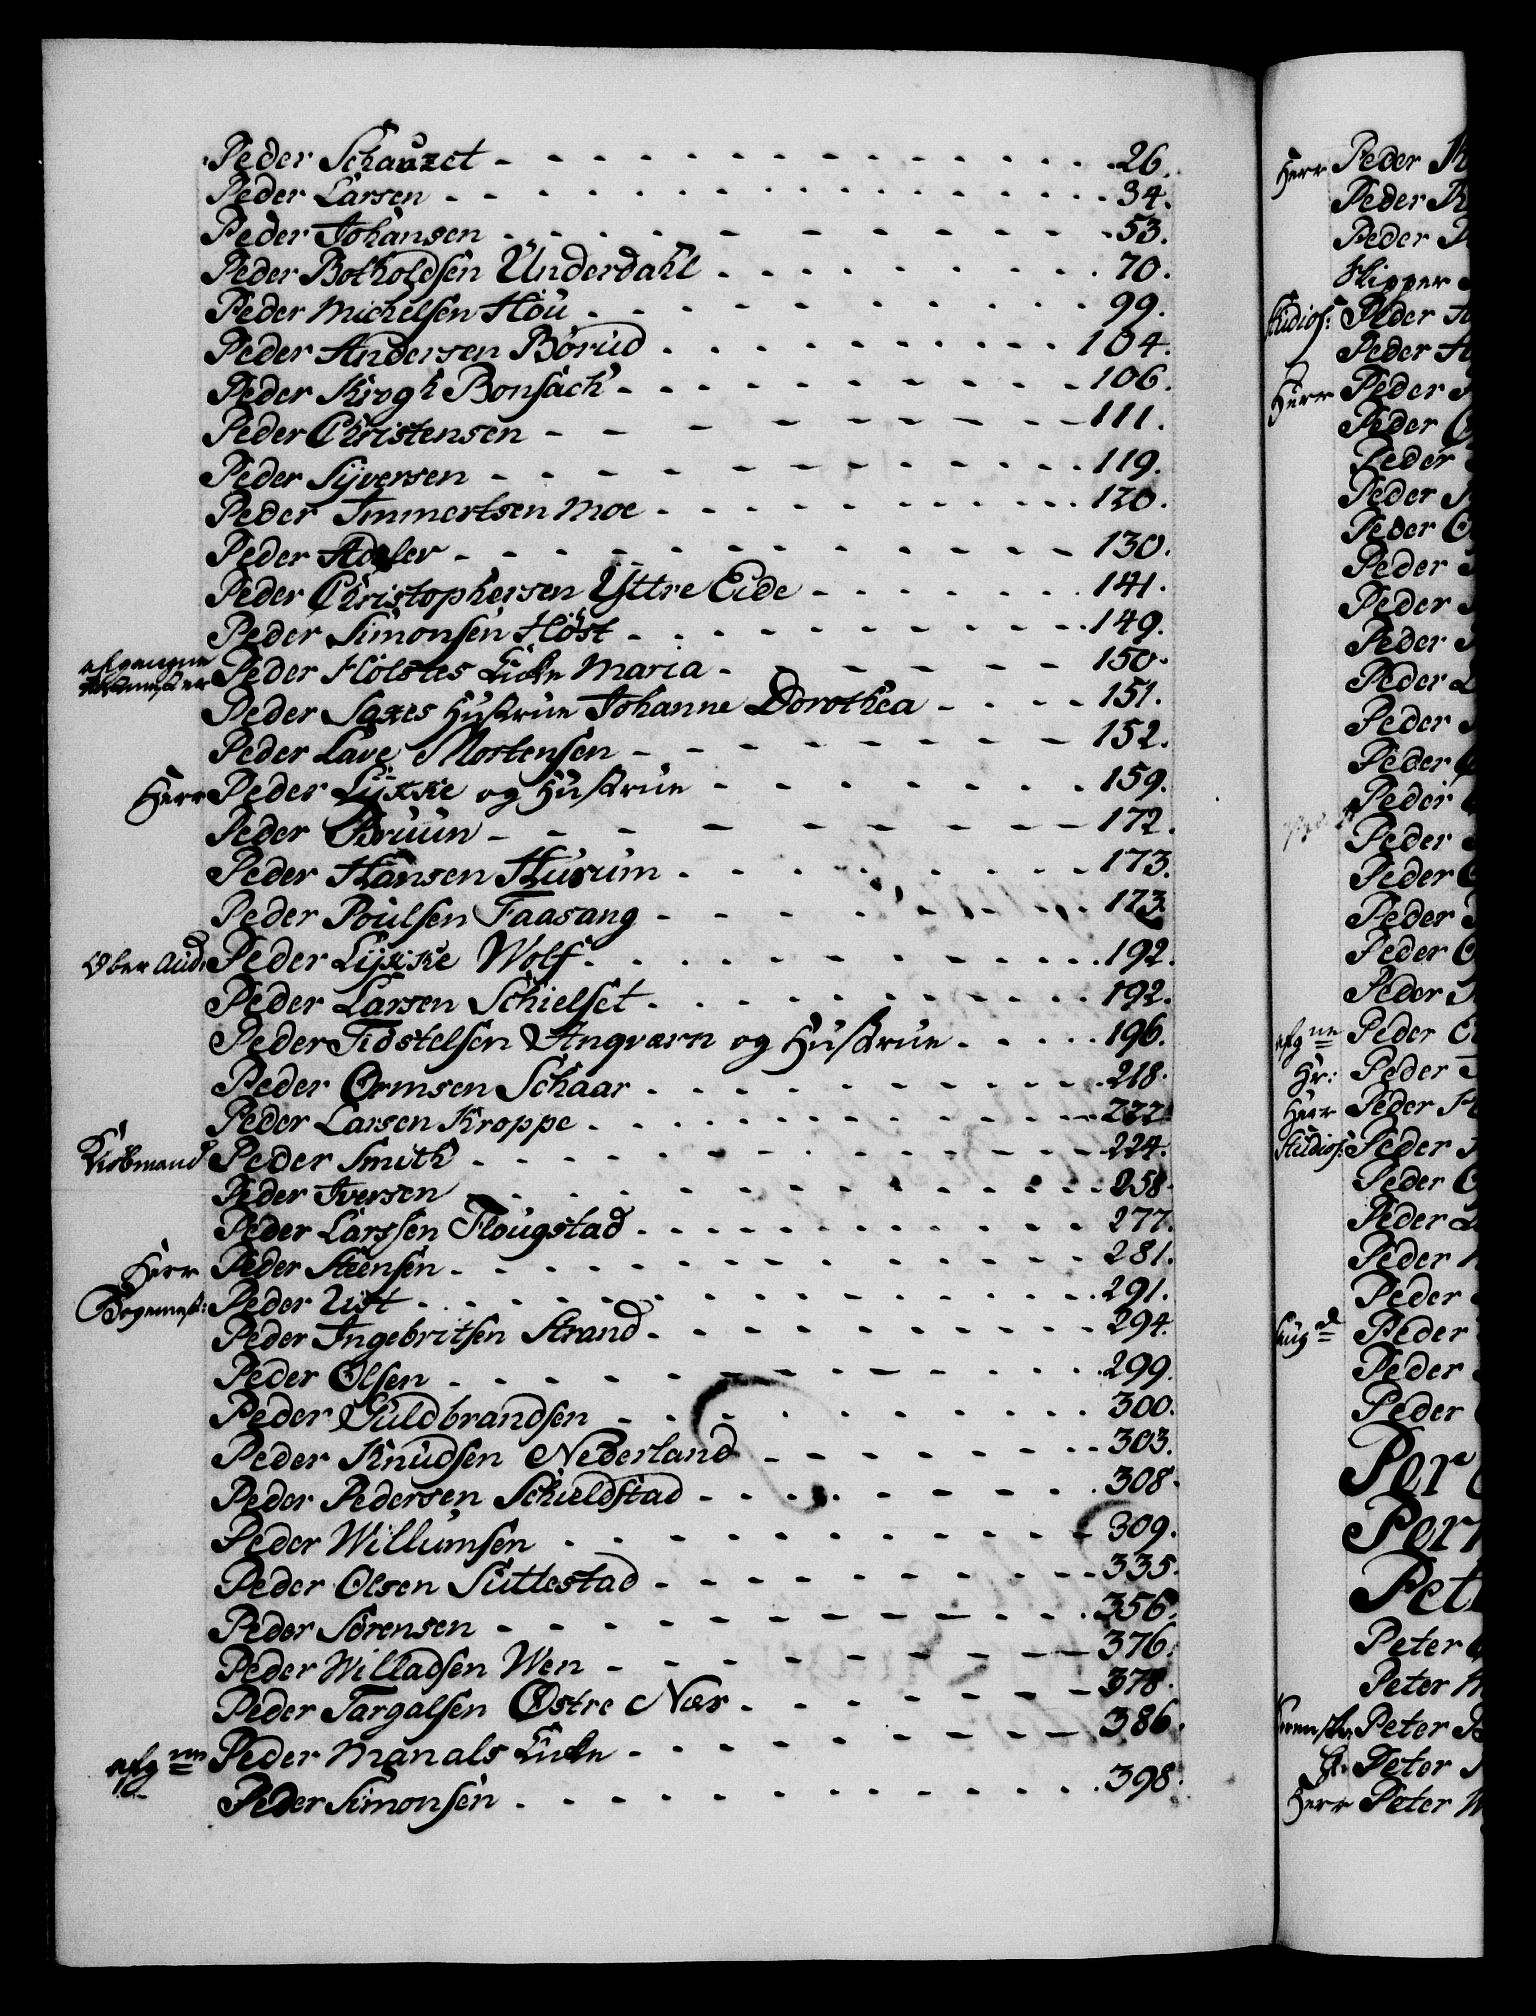 Peder Schauzet - - - 26.
Peder Larsen - - - 34.
Peder Johansen - - - 53.
Peder Botholdsen Underdahl - - - 70.
Peder Michelsen Höu - - - 99.
Peder Andersen Börud - - - 104.
Peder Krogh Bonsach - - - 106.
Peder Christensen - - - 111.
Peder Syversen - - - 119.
Peder Immertsen Moe - - - 120.
Peder Adeler - - - 130.
Peder Christophersen Yttre Eide - - - 141.
Peder Simonsen Höst - - - 149.
afgangne Peder Holstes Enke Maria - - - 150.
Peder Saxes Hustrue Johanne Dorothea - - - 151.
Peder Lave Mortensen - - - 152.
Herr Peder Lykke og Hustrue - - - 159.
Peder Bruun - - - 172.
Peder Hansen Hurum - - - 173.
Peder Poulsen Faasang - - - 173.
Ober Aud: Peder Lykke Wolf - - - 192.
Peder Larsen Schielset - - - 192.
Peder Tidstelsen Angvarn og Hustrue - - - 196.
Peder Ormsen Schaar - - - 218.
Peder Larsen Kroppe - - - 222.
Kiöbmand Peder Smith - - - 224.
Peder Iversen - - - 258.
Peder Larssen Flougstad - - - 277.
Herr Peder Steensen - - - 281.
Peder List - - - 291.
Peder Ingebritsen Strand - - - 294.
Peder Olsen - - - 299.
Peder Guldbrandsen - - - 300.
Peder Knudsen Nederland - - - 303.
Peder Pedersen Schieldstad - - - 308.
Peder Willumsen - - - 309.
Peder Olsen Suttestad - - - 335.
Peder Sörensen - - - 356.
Peder Willadsen Wen - - - 376.
Peder Targalsen Östre Nær - - - 378.
afg ne Peder Manals Enke - - - 386.
Peder Simonsen - - - 398.
Herr Peder
Peder
Peder
Skipper
Studios: Peder
Peder
Herr Peder
Peder
Peder
Peder
Peder
Peder
Peder
Peder
Peder
Peder
Peder
Peder
Peder
Peder
Peder
Peder
Peder
afg ne Peder
Hr: Peder
Herr Peder
Studios: Peder
Peder
Peder
Peder
Peder
Peder
Peder
Peder
Peter
Peter
Peter
Peter
Herr Peter